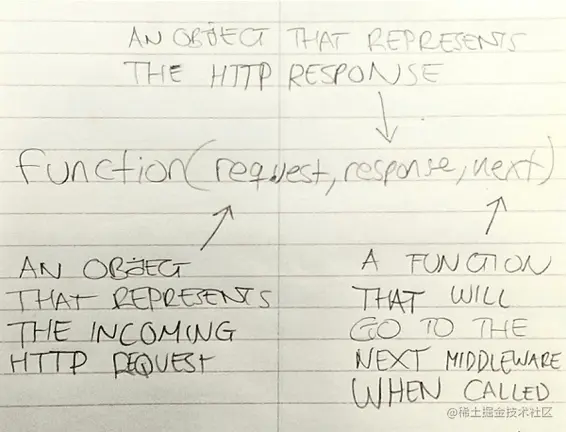 AN OBJECT THAT REPRESENTS
THE HTTP RESPONSE
function(request, response, next)
AN OBJECT
THAT REPRESENTS
THE INCOMING
HTTP REQUEST
A FUNCTION
THAT WILL
GO TO THE
NEXT MIDDLEWARE
WHEN CALLED
@稀土掘金技术社区